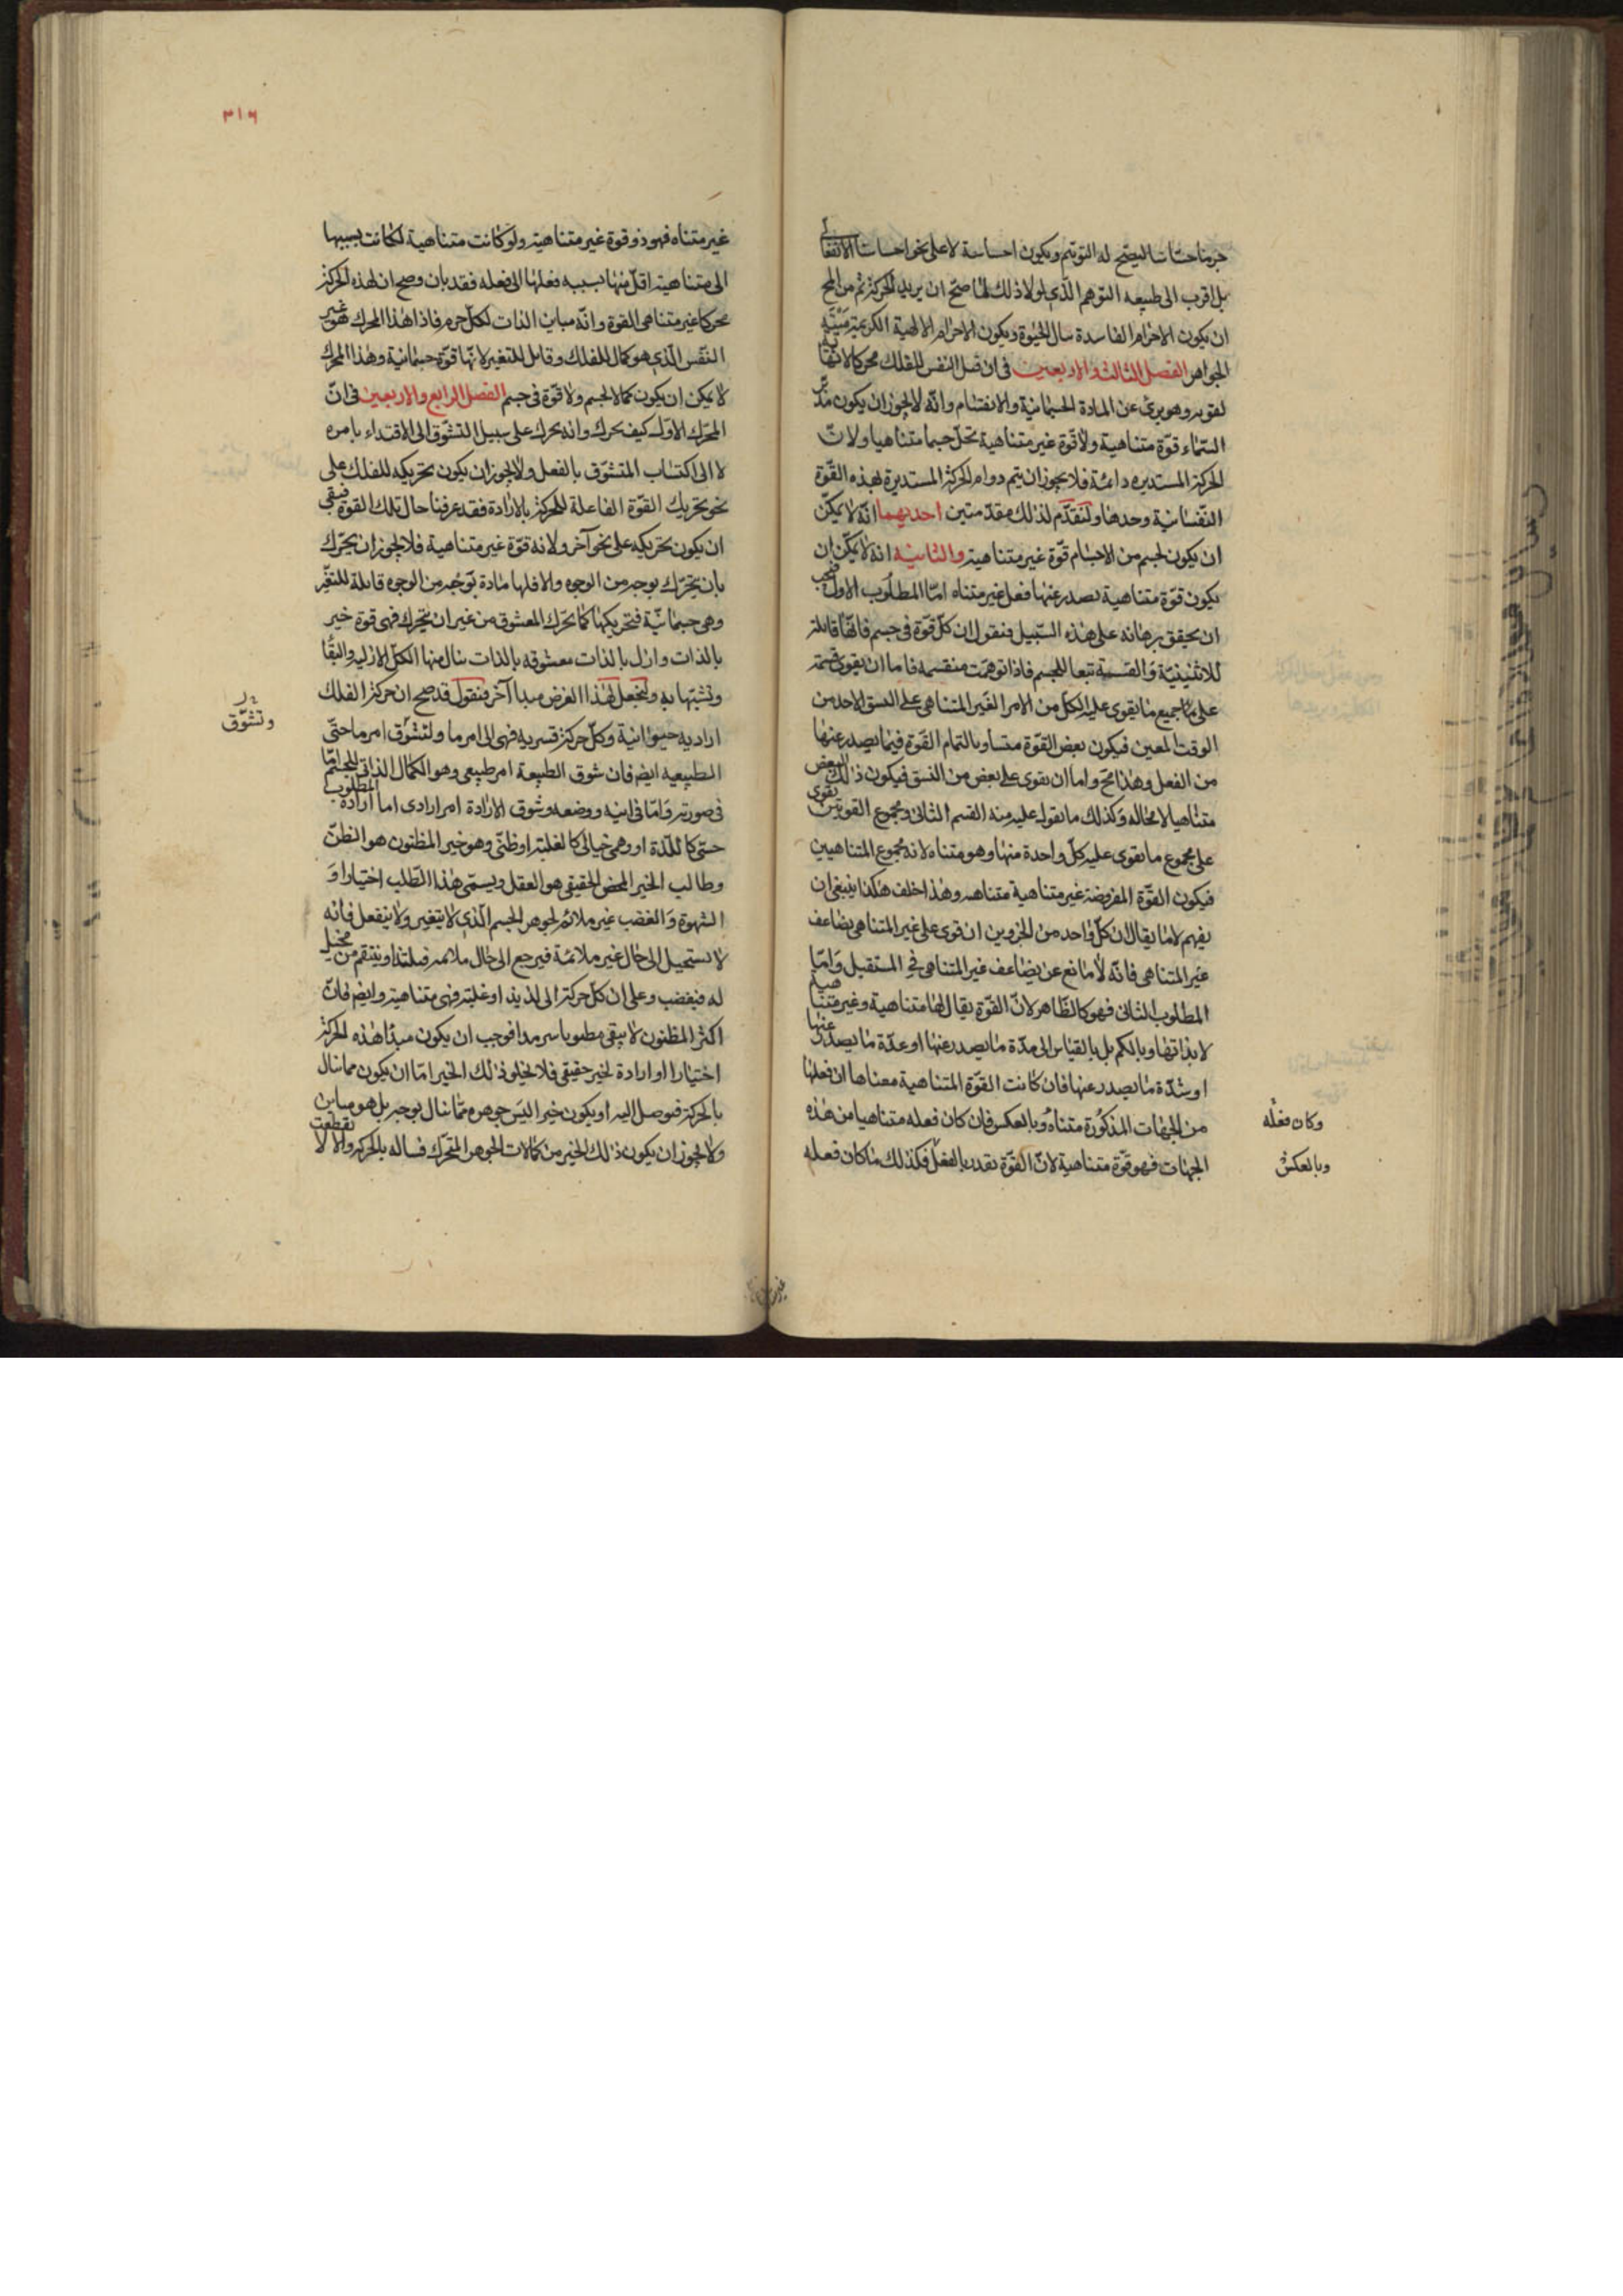 جرما حساسا ليصح له التوهم ويكون احساسه لا على نحو احساسنا الانفعالى
بل اقرب الى طبيعه التوهم الذى لولا ذلك لما صح ان يريد الحركة ثم من المح
ان يكون الاجرام الفاسدة تنال الحيوة ويكون الاجرام الالهية الكريمة ميتة
الجواهر الفصل الثالث والاربعين فى ان قبل النفس للفلك محركا لا نهاية
لقوته وهو برئ عن المادة الجسمانية والانقسام وانه لا يجوز ان يكون مدبر
السماء قوة متناهية ولا قوة غير متناهية تحل جسما متناهيا ولان
الحركة المستديره دائمة فلا يجوز ان يتم دوام الحركة المستديرة بهذه القوة
النفسانية وحدها ولنقدم لذلك مقدمتين احديهما انه لا يمكن
ان يكون لجسم من الاجسام قوة غير متناهية والثانية انه لا يمكن ان
يكون قوة متناهية يصدر عنها فعل غير متناه اما المطلوب الاول فيجب
ان يحقق برهانه على هذه السبيل فنقول ان كل قوة فى جسم فانها قابلة
للاثنينية والقسمة تبعا للجسم فاذا توهمت منقسمه فاما ان يقوى قسمته
على جميع ما يقوى عليه الكل من الامر الغير المتناهى على النسق الاحد من
الوقت المعين فيكون بعض القوة متساويا لتمام القوة فيما يصدر عنها
من الفعل وهذا مح واما ان يقوى على بعض من النسق فيكون ذلك البعض
متناهيا لا محاله وكذلك ما يقوى عليه منه القسم الثانى ومجموع القوتين يقوى
على مجموع ما يقوى عليه كل واحدة منها وهو متناه لانه مجموع المتناهيين
فيكون القوة المفروضة غير متناهية متناهيه وهذا خلف هكذا ينبغى ان
يفهم لا ما يقال ان كل واحد من الجزوين ان قوى على غير المتناهى يضاعف
غير المتناهى فانه لا مانع عن يضاعف غير المتناهى فى المستقبل واما
المطلوب الثانى فهو كالظاهر لان القوة يقال لها متناهية وغير متناهية
لا بذاتها وبالكم بل بالقياس الى مدة ما يصدر عنها او عدة ما يصدر عنها
او شدة ما يصدر عنها فان كانت القوة المتناهية معناها ان فعلها
من الجهات المذكورة متناه وبالعكس فان كان فعله متناهيا من هذه
الجهات فهو قوة متناهية لان القوة تقدر بالفعل فكذلك ما كان فعله
وكان فعله
وبالعكس
٣١٦
غير متناه فهو ذو قوة غير متناهية ولو كانت متناهية لكانت بسببها
الى متناهية اقل منها بسببه فعلها الى فعله فقد بان وصح ان لهذه الحركة
محركا غير متناهى القوة وانه مباين الذات لكل جرم فاذا هذا المحرك هو غير
النفس الذى هو كمال للفلك وقابل للتغير لانها قوة جسمانية وهذا المحرك
لا يمكن ان يكون كمالا لجسم ولا قوة فى جسم الفصل الرابع والاربعين فى ان
المحرك الاول كيف يحرك وانه يحرك على سبيل التشوق الى الاقتداء بامره
لا الى اكتساب المتشوق بالفعل ولا يجوز ان يكون تحريكه للفلك على
نحو تحريك القوة الفاعلة للحركة بالارادة فقد عرفنا حال تلك القوة فبقى
ان يكون تحريكه على نحو آخر ولانه قوة غير متناهية فلا يجوز ان يحرك
بان يتحرك بوجه من الوجوه والا فلها مادة بوجه من الوجوه قابلة للتغير
وهى جسمانية فتحريكها كما يحرك المعشوق من غير ان يتحرك فهى قوة خير
بالذات وازل بالذات معشوقه بالذات ينال منها الكل الازليه والبقا
وتشبها به ولنجعل لهذا الغرض مبدا آخر فنقول قد صح ان حركة الفلك
اراديه حيوانية وكل حركة قسريه فهى الى امر ما ولتشوق امر ما حتى
الطبيعيه ايضا فان شوق الطبيعة امر طبيعى وهو الكمال الذاتى للجسم اما
فى صورته واما فى اينه ووضعه وشوق الارادة امر ارادى اما ارادة المطلوب
حسى كاللذة او وهمى خيالى كالغلبة او ظنى وهو خير المظنون هو الظن
وطالب الخير المحض الحقيقى هو العقل ويسمى هذا الطلب اختيارا و
الشهوة والغضب غير ملائم لجوهر الجسم الذى لا يتغير ولا ينفعل فانه
لا يستحيل الى حال غير ملائمة فيرجع الى حال ملائمه فيلتذ او ينتقم من مخيل
له فيغضب وعلى ان كل حركة الى لذيذ او غلبة فهى متناهية وايضا فان
اكثر المظنون لا يبقى مظنونا سرمدا فوجب ان يكون مبدأ هذه الحركة
اختيارا او ارادة لخير حقيقى فلا يخلو ذلك الخير اما ان يكون مما ينال
بالحركة فيوصل اليه او يكون خيرا ليس جوهره مما ينال بوجه بل هو مباين
ولا يجوز ان يكون ذلك الخير من كمالات الجوهر المتحرك فيناله بالحركة والا لانقطعت
وتشوق